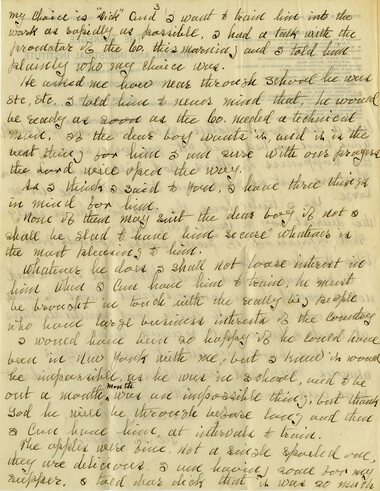 3
my choice is "Dick" and I want to train him into the
work as rapidly as possible, I had a talk with the
promotor of the Co. this morning and I told him
plainly who my choice was.
He asked me how near through school he was
etc, etc. I told him to never mind that, he would
be ready as soon as the Co. needed a technical
man. If the dear boy wants it and it is the
best thing for him I am sure with our prayers
the Lord will open the way.
As I think I said to you, I have three things
in mind for him.
None of them may suit the dear boy if not I
shall be glad to have him secure whatever is
the most pleasing to him.
Whatever he does I shall not loose interest in
him when I can have him to train, he must
be brought in touch with the really big people
who have large business interests of the country
I would have been so happy if he could have
been in New York with me, but I knew it would
be impossible, as he was in school, and to be
out a month was an impossible thing, but thank
God he will be through before long and then
I can have him, at intervals to train.
The apples were fine. not a single spoiled one,
they are delicious. I am having some for my
supper. I told dear Dick that it was so much